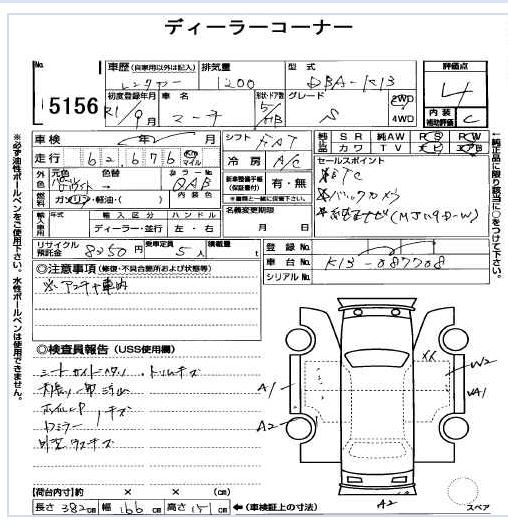 ディーラーコーナー
No. 5156
車歴(自家用以外は記入) レンタカー
排気量 1200
型式 DBA-K13
評価点 4
初度登録年月 R1/9月
車名 マーチ
形状・ドア数 5/HB
グレード S
2WD
4WD
内装補助評価 C
車検 年 月
シフト FAT
純正品 SR 純AW PS PW
カワ TV ナビ エアB
走行 62,676 Km マイル
冷房 A/C
新車整備手帳(保証書付) 有・無
※書類と一緒に保管下さい。
セールスポイント
※ETC
※バックカメラ
※ナビ(MJ119D-W)
外色 元色 色替
カラーNo. QAB
燃料 ガソリン・軽油・( )
内装色
名義変更期限 月 日
輸入車用 年式 輸入区分 ハンドル
ディーラー・並行 左・右
リサイクル預託金 8250円
乗車定員 5人
積載量 t
登録No.
車台No. K13-087708
シリアルNo.
◎注意事項(修復・不具合箇所および状態等)
※アンテナ車内
◎検査員報告(USS使用欄)
・トリムキズ
A1
A2
W2
A1
A2
スペア
【荷台内寸】約 × × (cm)
長さ 382cm 幅 166cm 高さ 151cm ←(車検証上の寸法)
※必ず油性ボールペンをご使用下さい。水性ボールペンは使用できません。
←純正品に限り該当に○をつけて下さい。